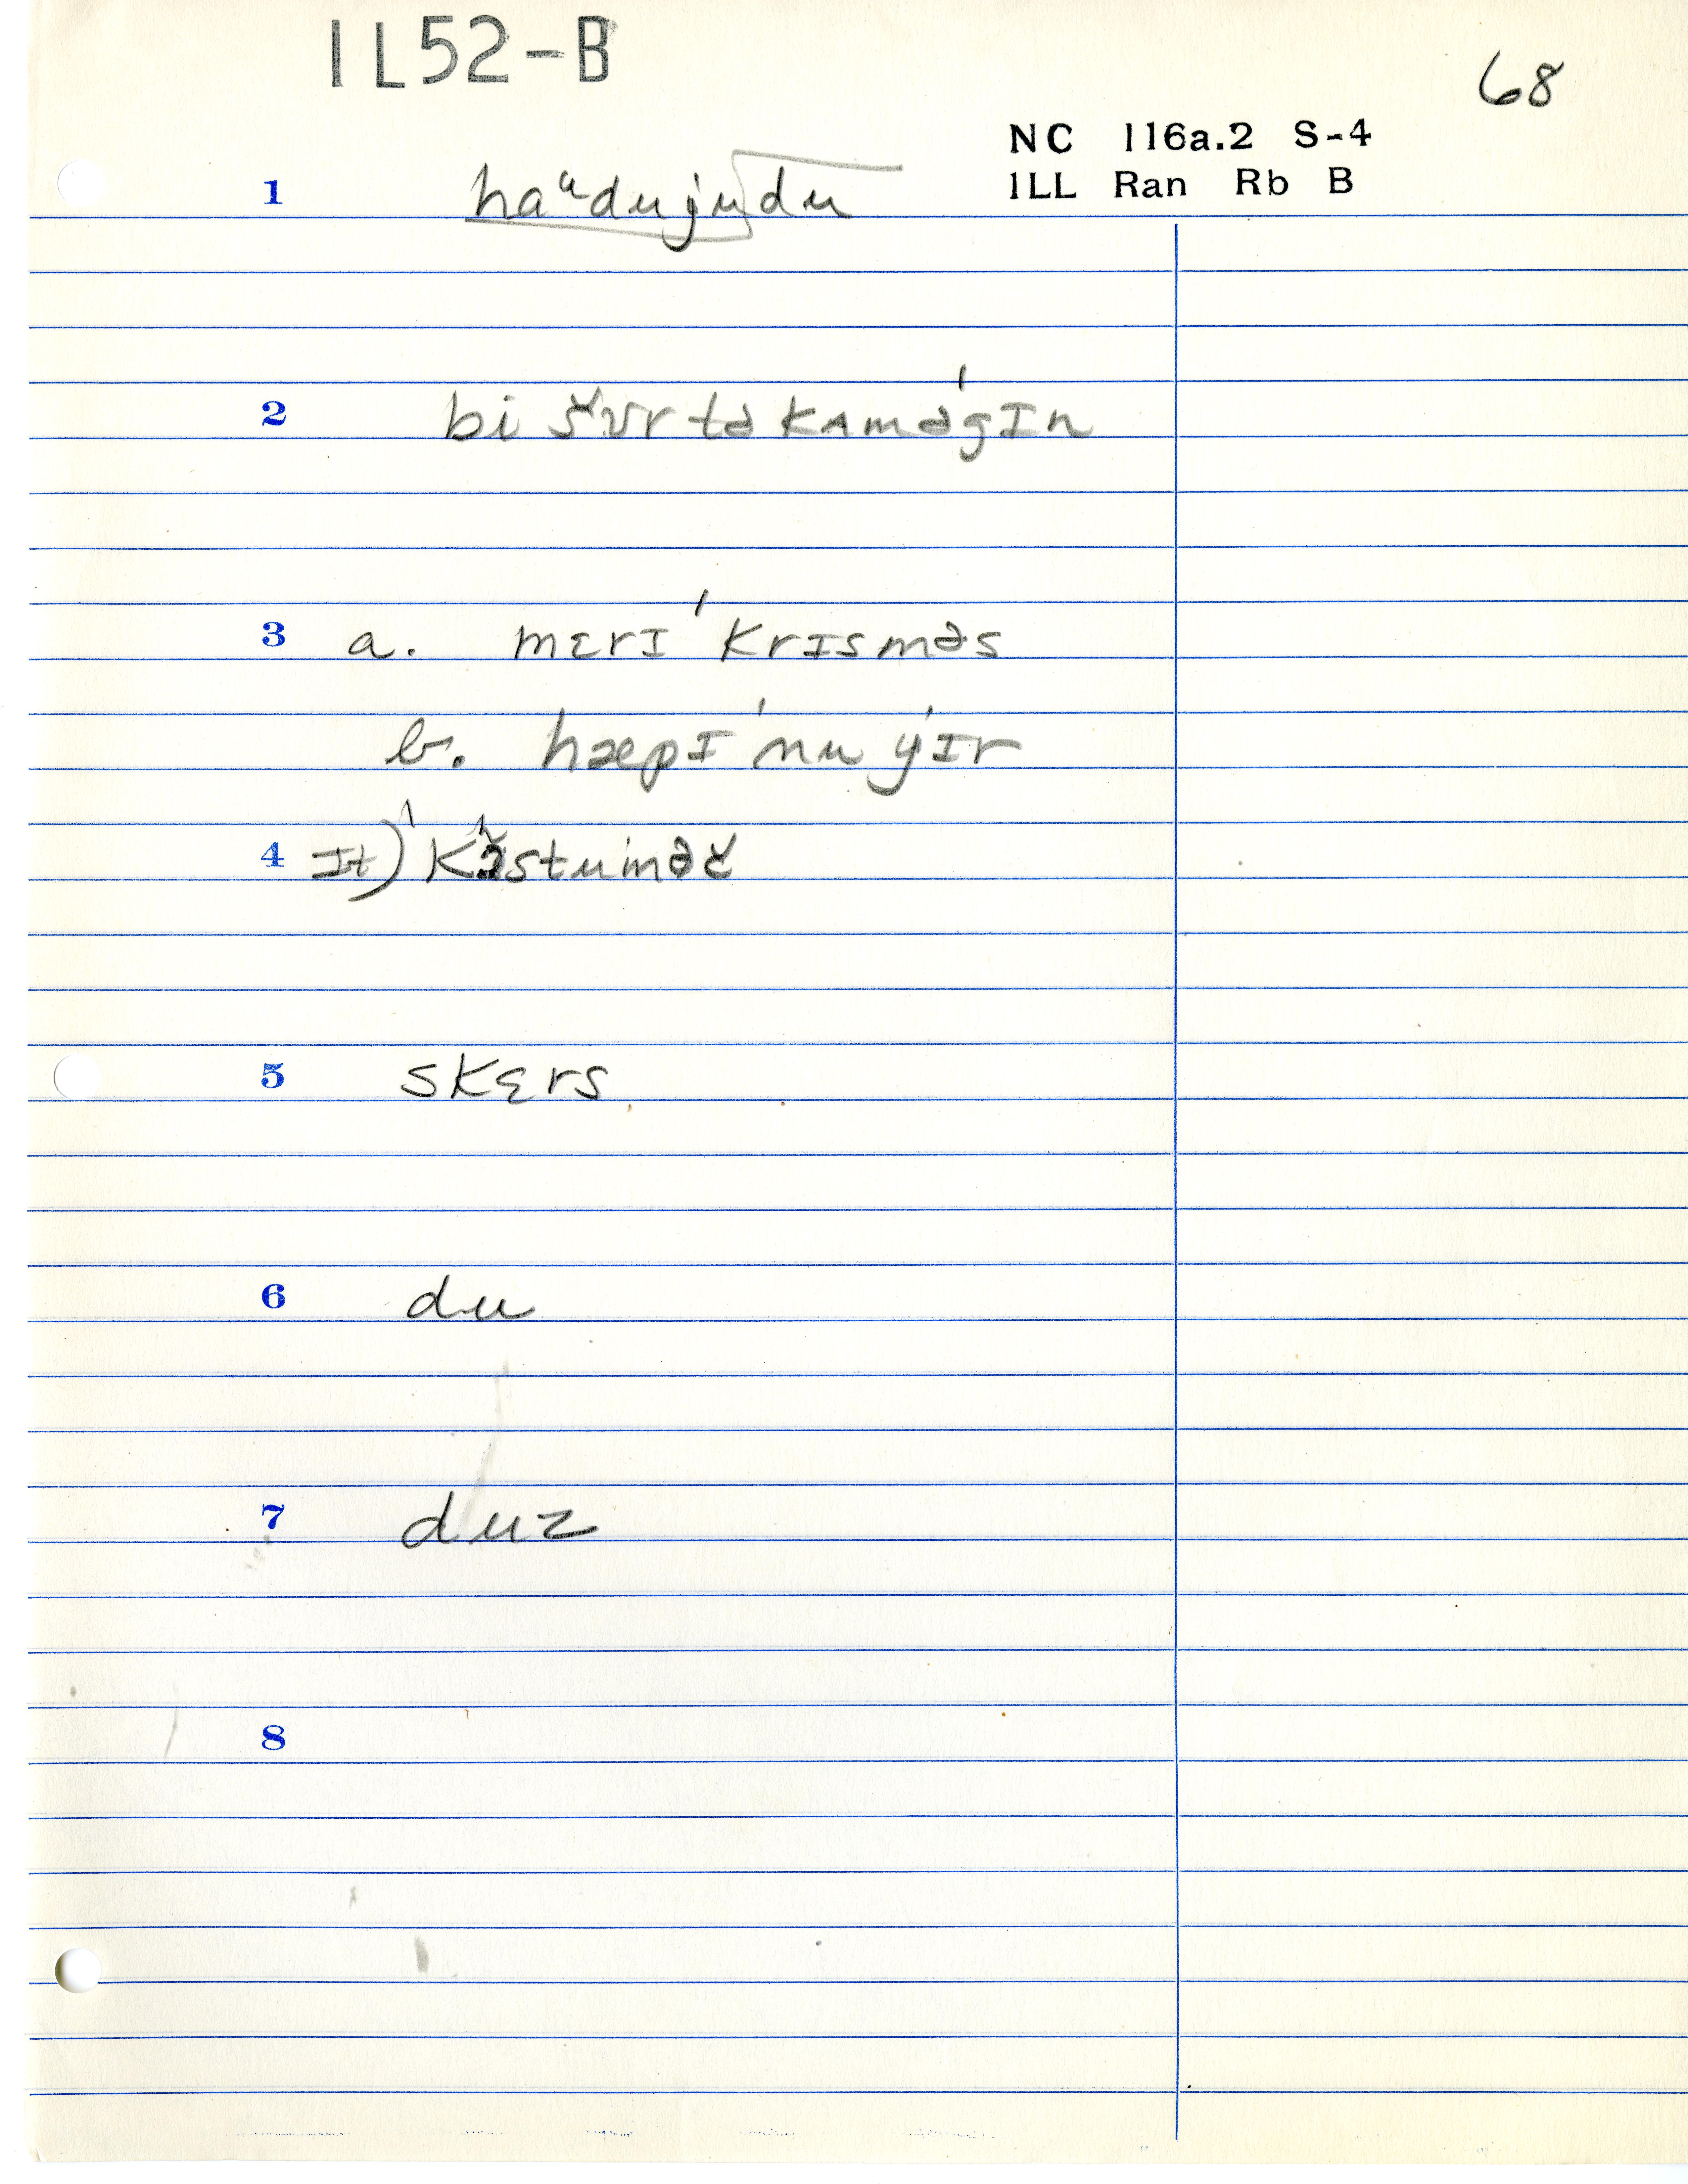 1L52-B
68
NC 116a.2 S-4
1LL Ran Rb B
1 haᵘdujudu
2 bi šʊr tə kʌməgɪn
3 a. mɛrɪ ˈkrɪsməs
b. hæpɪ ˈnu ˈyɪr
4 It)
5 skɛrs
6 du
7 duz
8